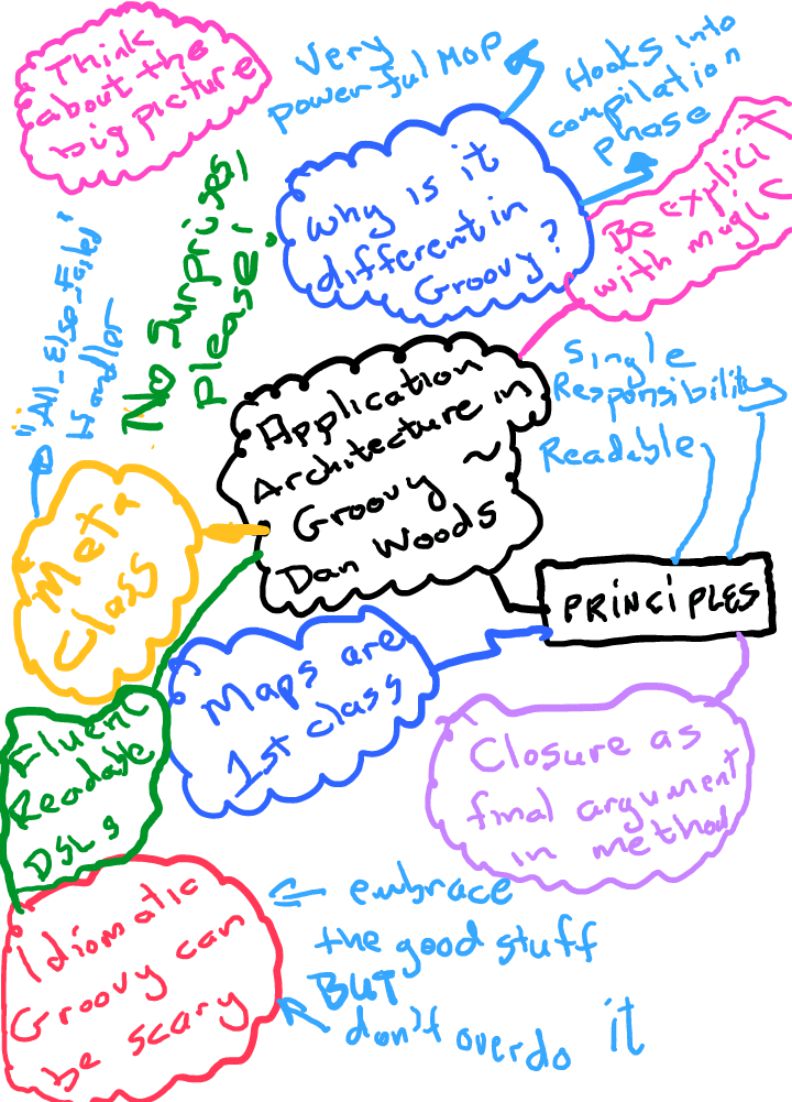 Think
about the
big picture
Very
powerful MOP
Hooks into
compilation
phase
why is it
different in
Groovy?
Be explicit
with magic
No Surprises,
Please!
"All_Else_Failed"
Handler
Application
Architecture in
Groovy ~
Dan Woods
Single
Responsibility
Readable
PRiNCiPLES
Meta
Class
Maps are
1st class
Fluent
Readable
DSLs
Closure as
final argument
in method
Idiomatic
Groovy can
be scary
embrace
the good stuff
BUT
don't overdo it